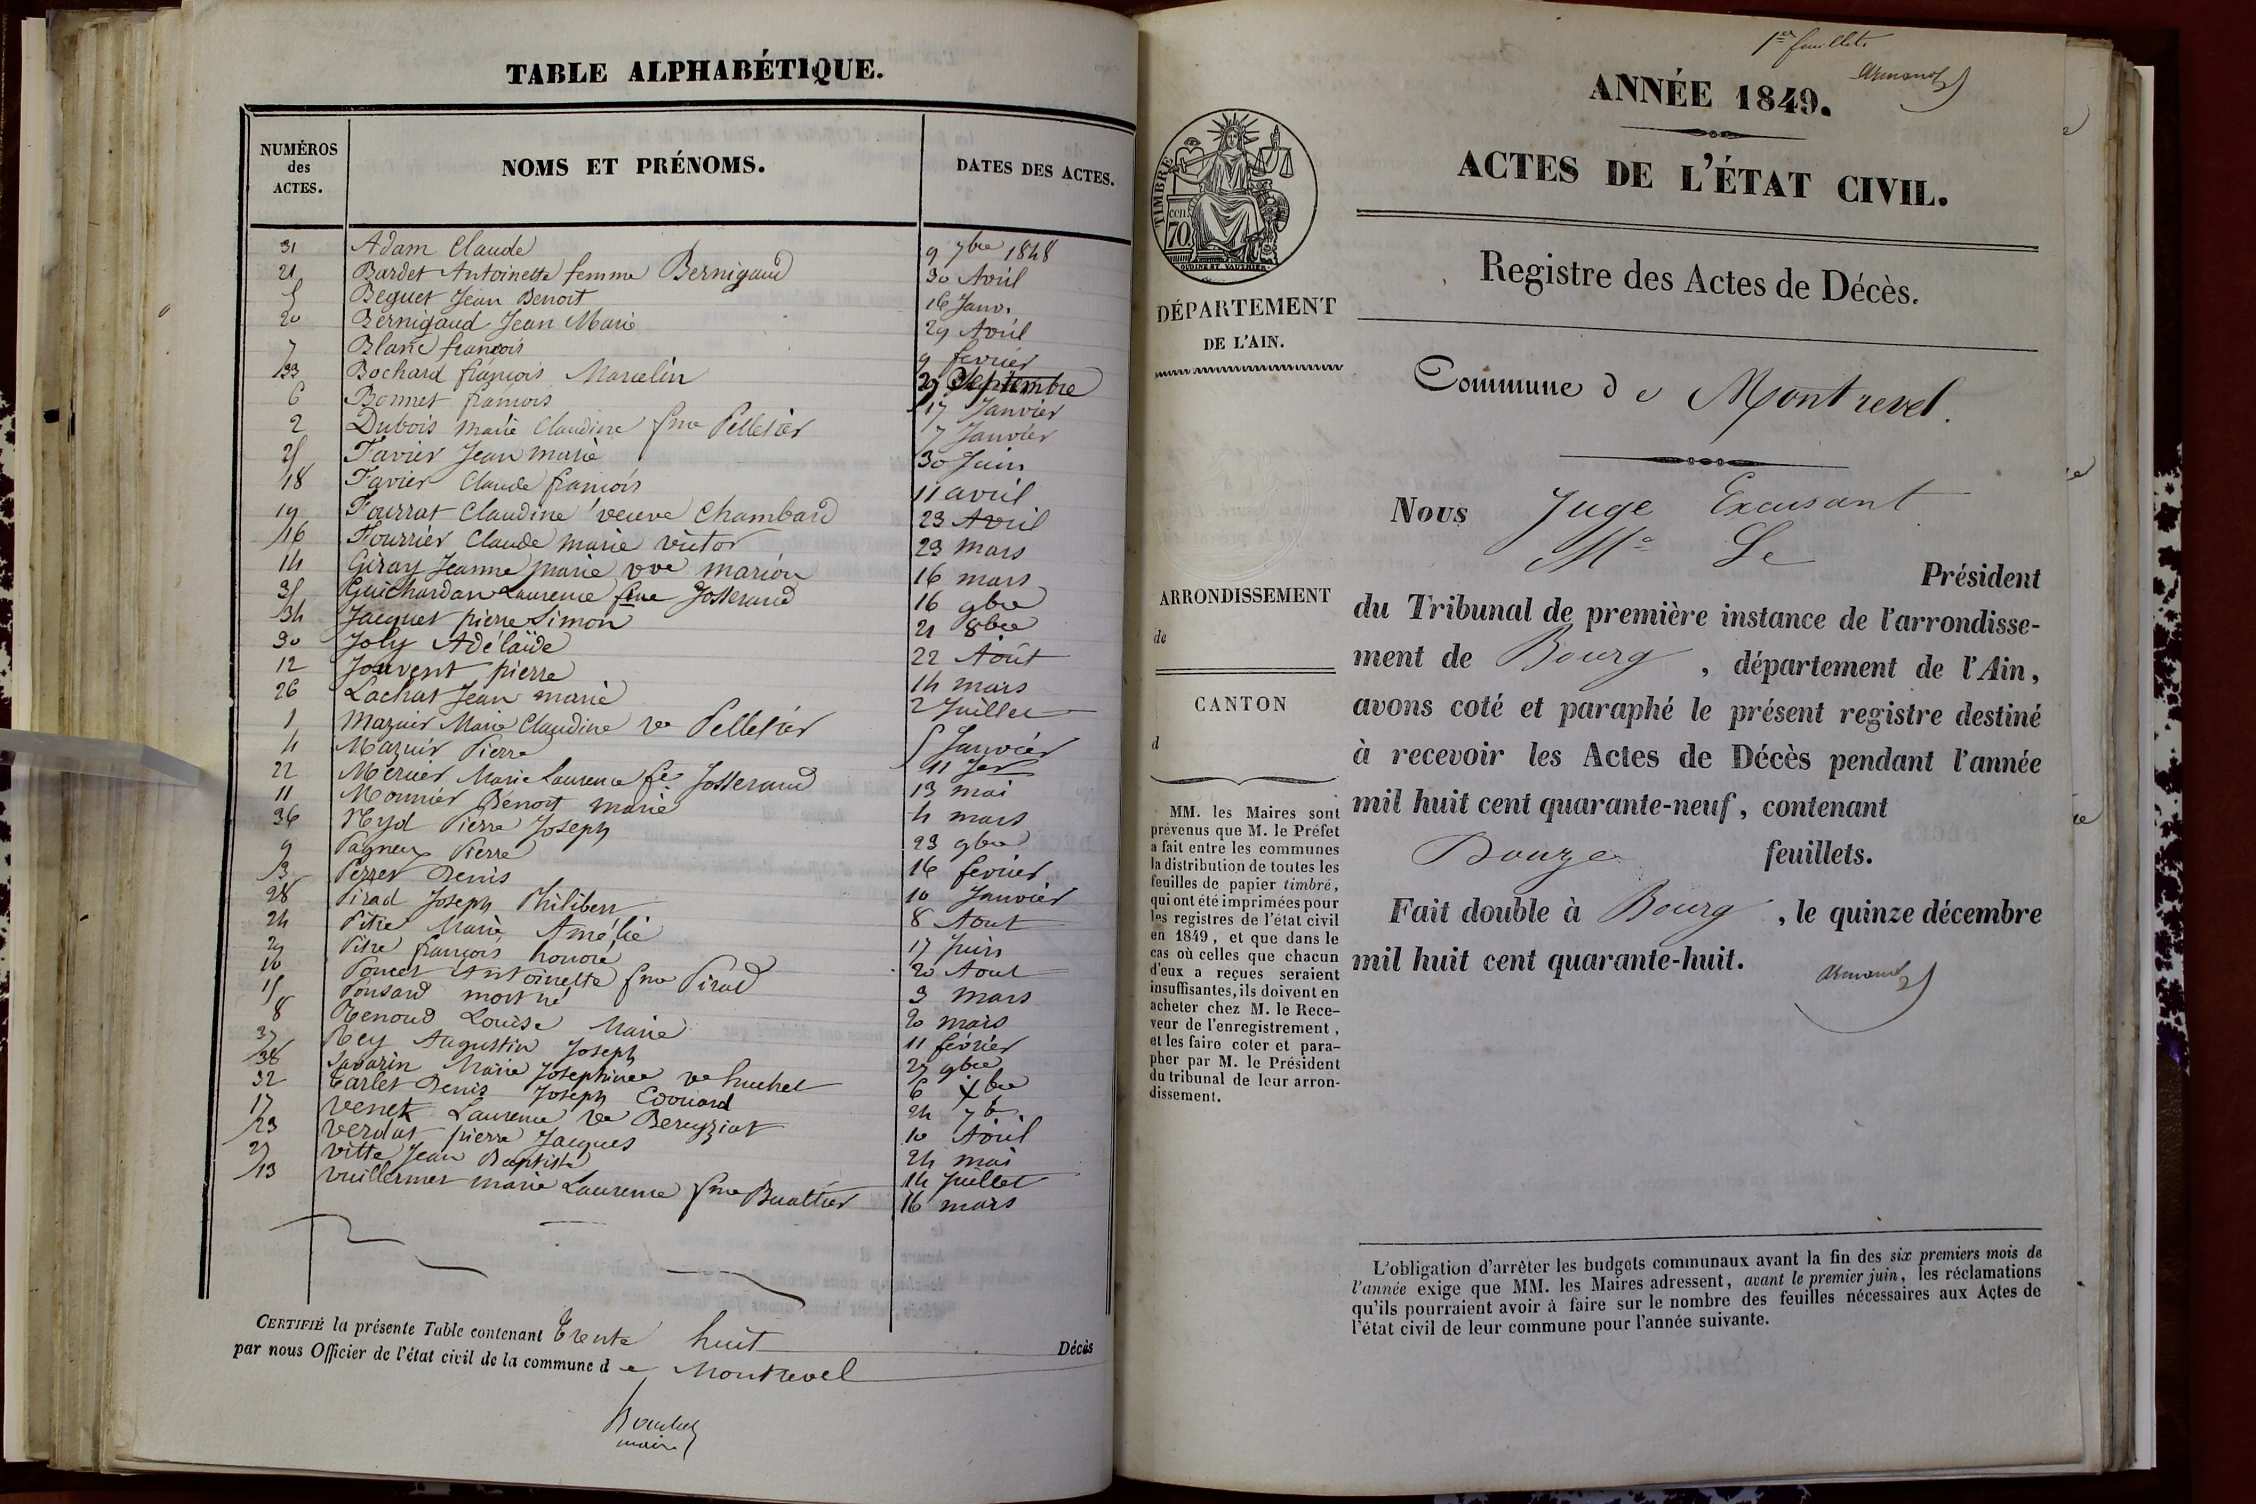 TABLE ALPHABÉTIQUE.
NUMÉROS
des
ACTES.
NOMS ET PRÉNOMS.
DATES DES ACTES.
31 Adam Claude 9 7bre 1848
21 Bardet Antoinette femme Bernigaud 30 Avril
5 Beguet Jean Benoit 16 Janv.
20 Bernigaud Jean Marie 29 Avril
7 Blanc françois 9 fevrier
33 Bochard françois Marcelin 29 Septembre
6 Bonnet françois 17 Janvier
2 Dubois Marie Claudine fme Pelletier 7 Janvier
25 Favier Jean marie 30 Juin
18 Favier Claude françois 11 avril
19 Fourrat Claudine veuve Chambard 23 Avril
16 Fourrier Claude marie victor 23 mars
14 Giray Jeanne marie vve marion 16 mars
35 Guichardan Laurence fme Josserand 16 9bre
34 Jacquet pierre Simon 21 8bre
30 Joly Adélaïde 22 Août
12 Jouvent pierre 14 mars
26 Lachat Jean marie 2 Juillet
1 Mazuir Marie Claudine ve Pelletier 5 Janvier
4 Mazuir Pierre 11 Jer
22 Mercier Marie Laurence fe Josserand 13 mai
11 Monnier Benoit marie 4 mars
36 Neyd Pierre Joseph 23 9bre
9 Pagneux Pierre 16 fevrier
3 Perret Denis 10 Janvier
28 Pirad Joseph Philibert 8 Aout
24 Pitre Marie Amélie 17 Juin
29 Pitre françois honoré 20 Aout
10 Poncet Antoinette fme Pirad 3 mars
15 Ponsard mort né 20 mars
8 Renoud Louise Marie 11 février
37 Rey Augustin Joseph 27 9bre
38 Savarin Marie Josephinee ve huchet 6 Xbre
32 Tarlet Denis Joseph Edouard 24 7b
17 Venet Laurence ve Bereyziat 10 Avril
23 Verdat pierre Jacques 24 mai
27 Vitte Jean Baptiste 14 Juillet
13 Vuillermet marie Laurence fme Buattier 16 mars
CERTIFIÉ la présente Table contenant Trente huit Décès
par nous Officier de l'état civil de la commune de Montrevel
maire
1er feuillet
Armand
ANNÉE 1849.
ACTES DE L'ÉTAT CIVIL.
Registre des Actes de Décès.
TIMBRE
70
cen
OUDINE ET VAUTHIER
DÉPARTEMENT
DE L'AIN.
Commune de Montrevel.
ARRONDISSEMENT
de
CANTON
d
MM. les Maires sont
prévenus que M. le Préfet
a fait entre les communes
la distribution de toutes les
feuilles de papier timbré,
qui ont été imprimées pour
les registres de l'état civil
en 1849, et que dans le
cas où celles que chacun
d'eux a reçues seraient
insuffisantes, ils doivent en
acheter chez M. le Rece-
veur de l'enregistrement,
et les faire coter et para-
pher par M. le Président
du tribunal de leur arron-
dissement.
Nous Juge Excusant
Mr Le
Président
du Tribunal de première instance de l'arrondisse-
ment de Bourg, département de l'Ain,
avons coté et paraphé le présent registre destiné
à recevoir les Actes de Décès pendant l'année
mil huit cent quarante-neuf, contenant
Douze feuillets.
Fait double à Bourg, le quinze décembre
mil huit cent quarante-huit.
Armand
L'obligation d'arrêter les budgets communaux avant la fin des six premiers mois de
l'année exige que MM. les Maires adressent, avant le premier juin, les réclamations
qu'ils pourraient avoir à faire sur le nombre des feuilles nécessaires aux Actes de
l'état civil de leur commune pour l'année suivante.